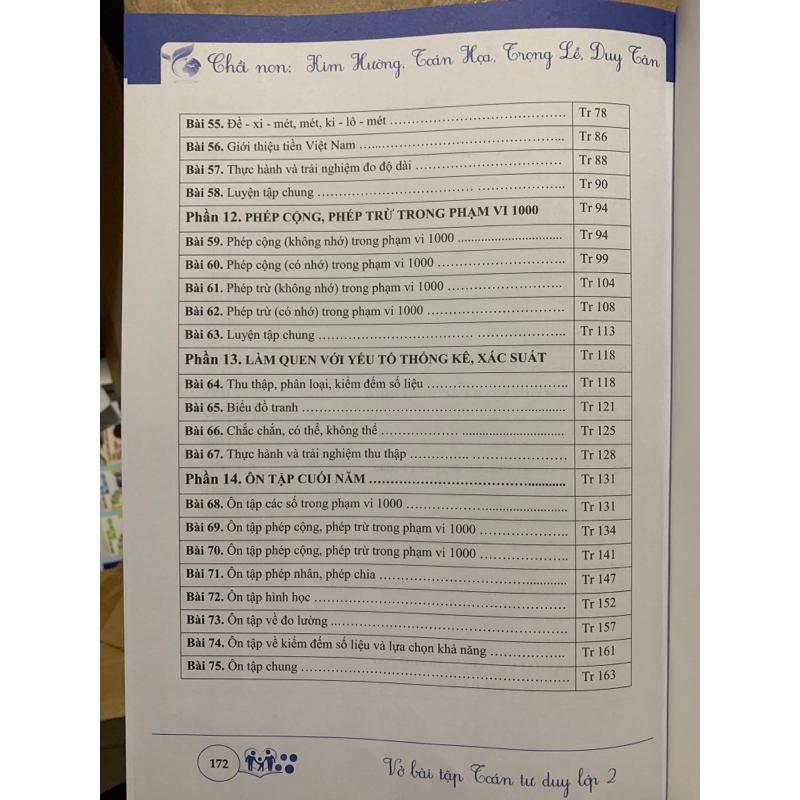 Chồi non: Kim Hường, Toán Họa, Trọng Lễ, Duy Tân
Bài 55. Đề - xi - mét, mét, ki - lô - mét ........................................ Tr 78
Bài 56. Giới thiệu tiền Việt Nam ........................................ Tr 86
Bài 57. Thực hành và trải nghiệm đo độ dài ........................................ Tr 88
Bài 58. Luyện tập chung ........................................ Tr 90
Phần 12. PHÉP CỘNG, PHÉP TRỪ TRONG PHẠM VI 1000 Tr 94
Bài 59. Phép cộng (không nhớ) trong phạm vi 1000 ................................ Tr 94
Bài 60. Phép cộng (có nhớ) trong phạm vi 1000 ................................ Tr 99
Bài 61. Phép trừ (không nhớ) trong phạm vi 1000 ................................ Tr 104
Bài 62. Phép trừ (có nhớ) trong phạm vi 1000 ................................ Tr 108
Bài 63. Luyện tập chung ........................................ Tr 113
Phần 13. LÀM QUEN VỚI YẾU TỐ THỐNG KÊ, XÁC SUẤT Tr 118
Bài 64. Thu thập, phân loại, kiểm đếm số liệu ................................ Tr 118
Bài 65. Biểu đồ tranh ........................................ Tr 121
Bài 66. Chắc chắn, có thể, không thể ........................................ Tr 125
Bài 67. Thực hành và trải nghiệm thu thập ................................ Tr 128
Phần 14. ÔN TẬP CUỐI NĂM ........................................ Tr 131
Bài 68. Ôn tập các số trong phạm vi 1000 ................................ Tr 131
Bài 69. Ôn tập phép cộng, phép trừ trong phạm vi 1000 ........................ Tr 134
Bài 70. Ôn tập phép cộng, phép trừ trong phạm vi 1000 ........................ Tr 141
Bài 71. Ôn tập phép nhân, phép chia ........................................ Tr 147
Bài 72. Ôn tập hình học ........................................ Tr 152
Bài 73. Ôn tập về đo lường ........................................ Tr 157
Bài 74. Ôn tập về kiểm đếm số liệu và lựa chọn khả năng .................... Tr 161
Bài 75. Ôn tập chung ........................................ Tr 163
172
Vở bài tập Toán tư duy lớp 2